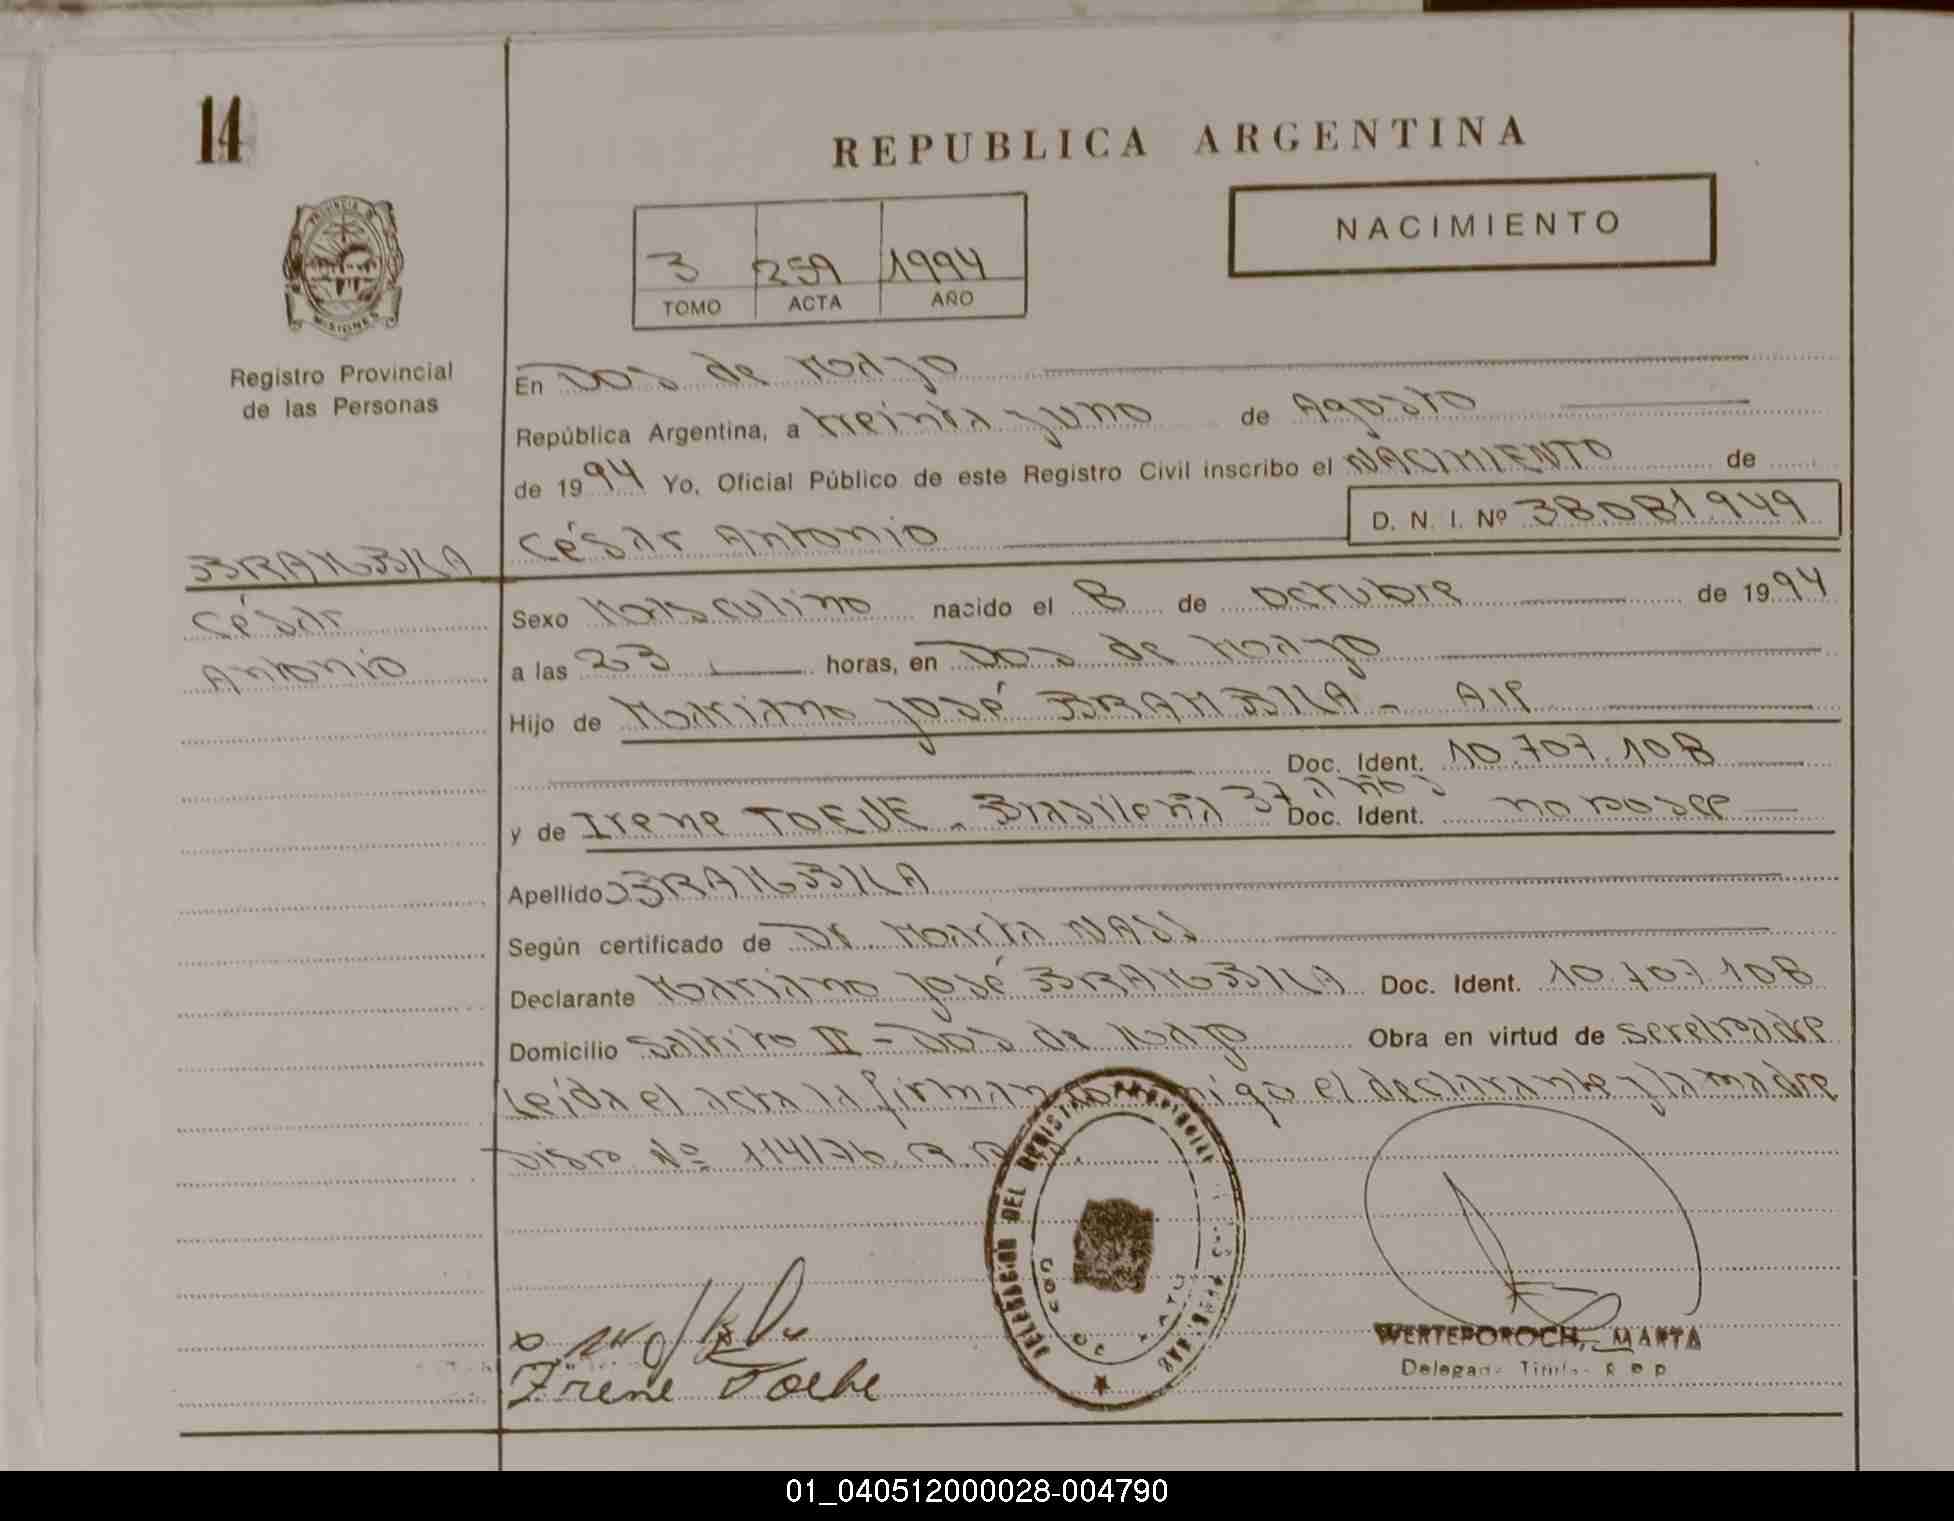 14
REPUBLICA ARGENTINA
NACIMIENTO
3 259 1994
TOMO ACTA AÑO
PROVINCIA DE
MISIONES
Registro Provincial
de las Personas
En Dos de Mayo
República Argentina, a treinta y uno de Agosto
de 1994 Yo, Oficial Público de este Registro Civil inscribo el NACIMIENTO de
César Antonio D. N. I. Nº 38.081.949
BRAMBILLA
César
Antonio
Sexo Masculino nacido el 8 de octubre de 1994
a las 23 horas, en Dos de Mayo
Hijo de Mariano José BRAMBILLA - Arg
Doc. Ident. 10.707.108
y de Irene TOEVE - Brasileña 37 años Doc. Ident. no posee
Apellido BRAMBILLA
Según certificado de Dr. Marta NASS
Declarante Mariano José BRAMBILLA Doc. Ident. 10.707.108
Domicilio Saltito II - Dos de Mayo Obra en virtud de ser el padre
Leída el acta la firman conmigo el declarante y la madre
Disp Nº 114/76
DELEGACION DEL REGISTRO PROVINCIAL
DOS DE MAYO
Irene Toebe
WERTEPOROCH, MARTA
Delegada Titular R P P
01_040512000028-004790